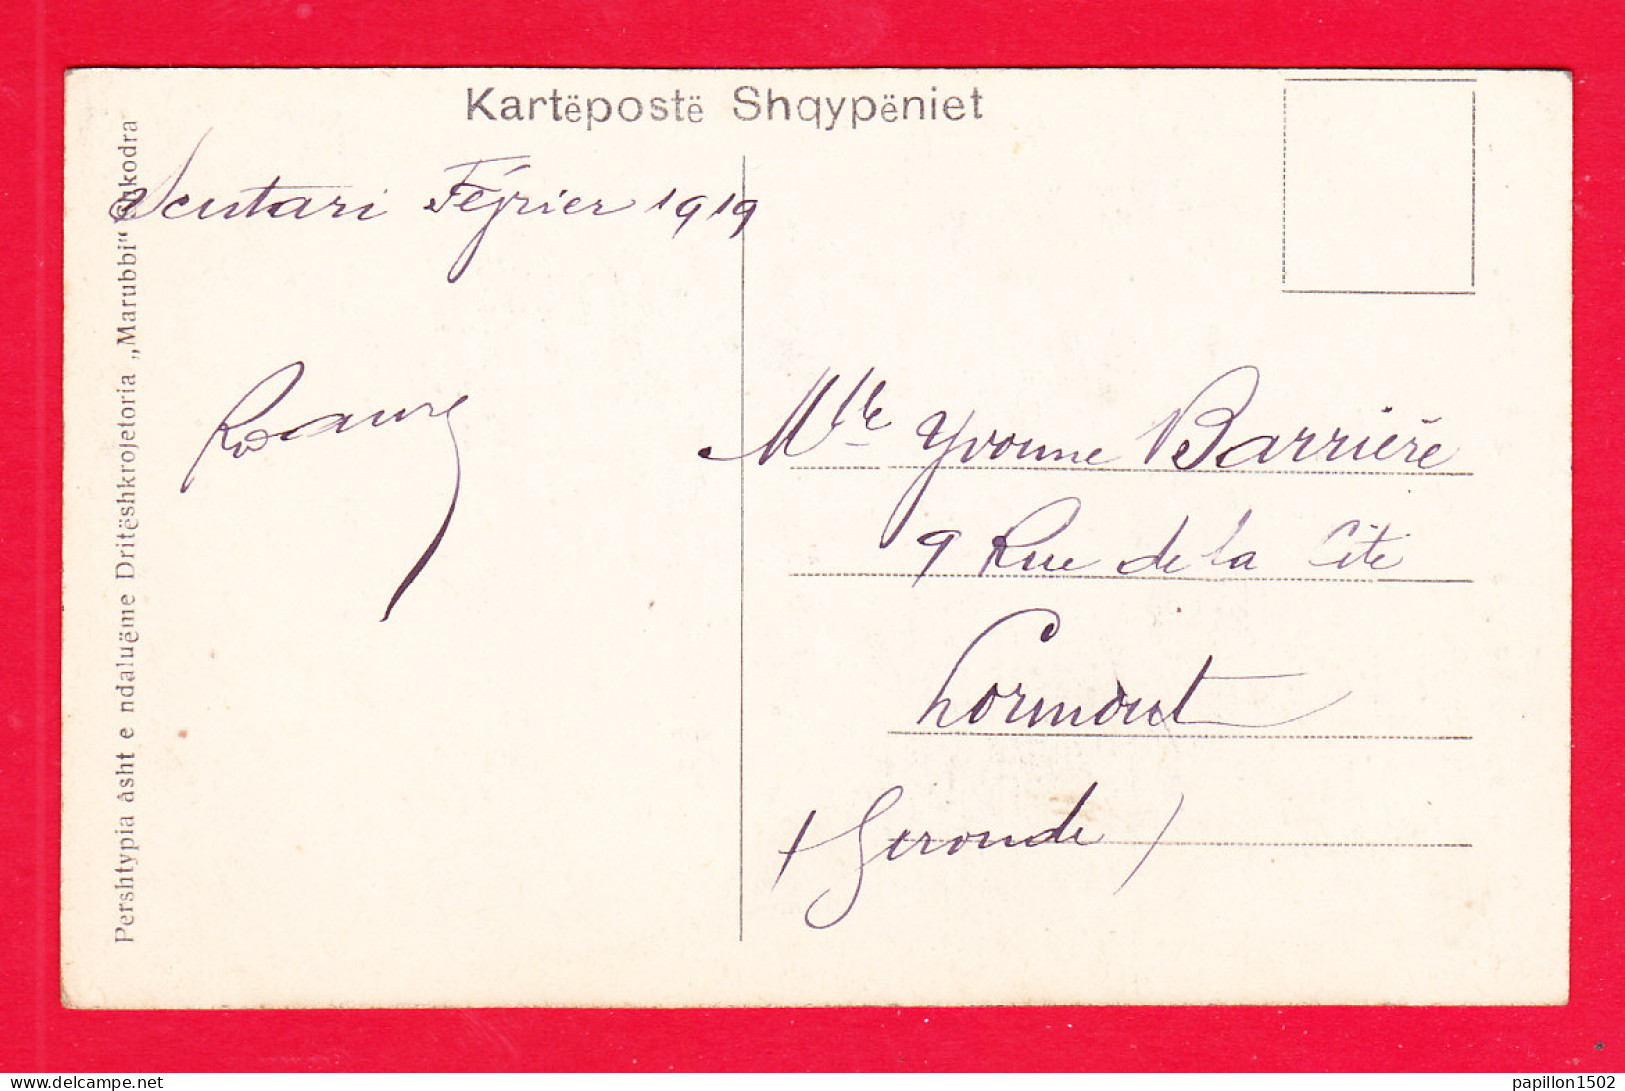 Kartëpostë Shqypëniet
Scutari Février 1919
Mlle Yvonne Barrière
9 Rue de la Cité
Lormont
(Gironde)
Pershtypia âsht e ndaluëme Dritëshkrojetoria „Marubbi“ Shkodra
www.delcampe.net
papillon1502